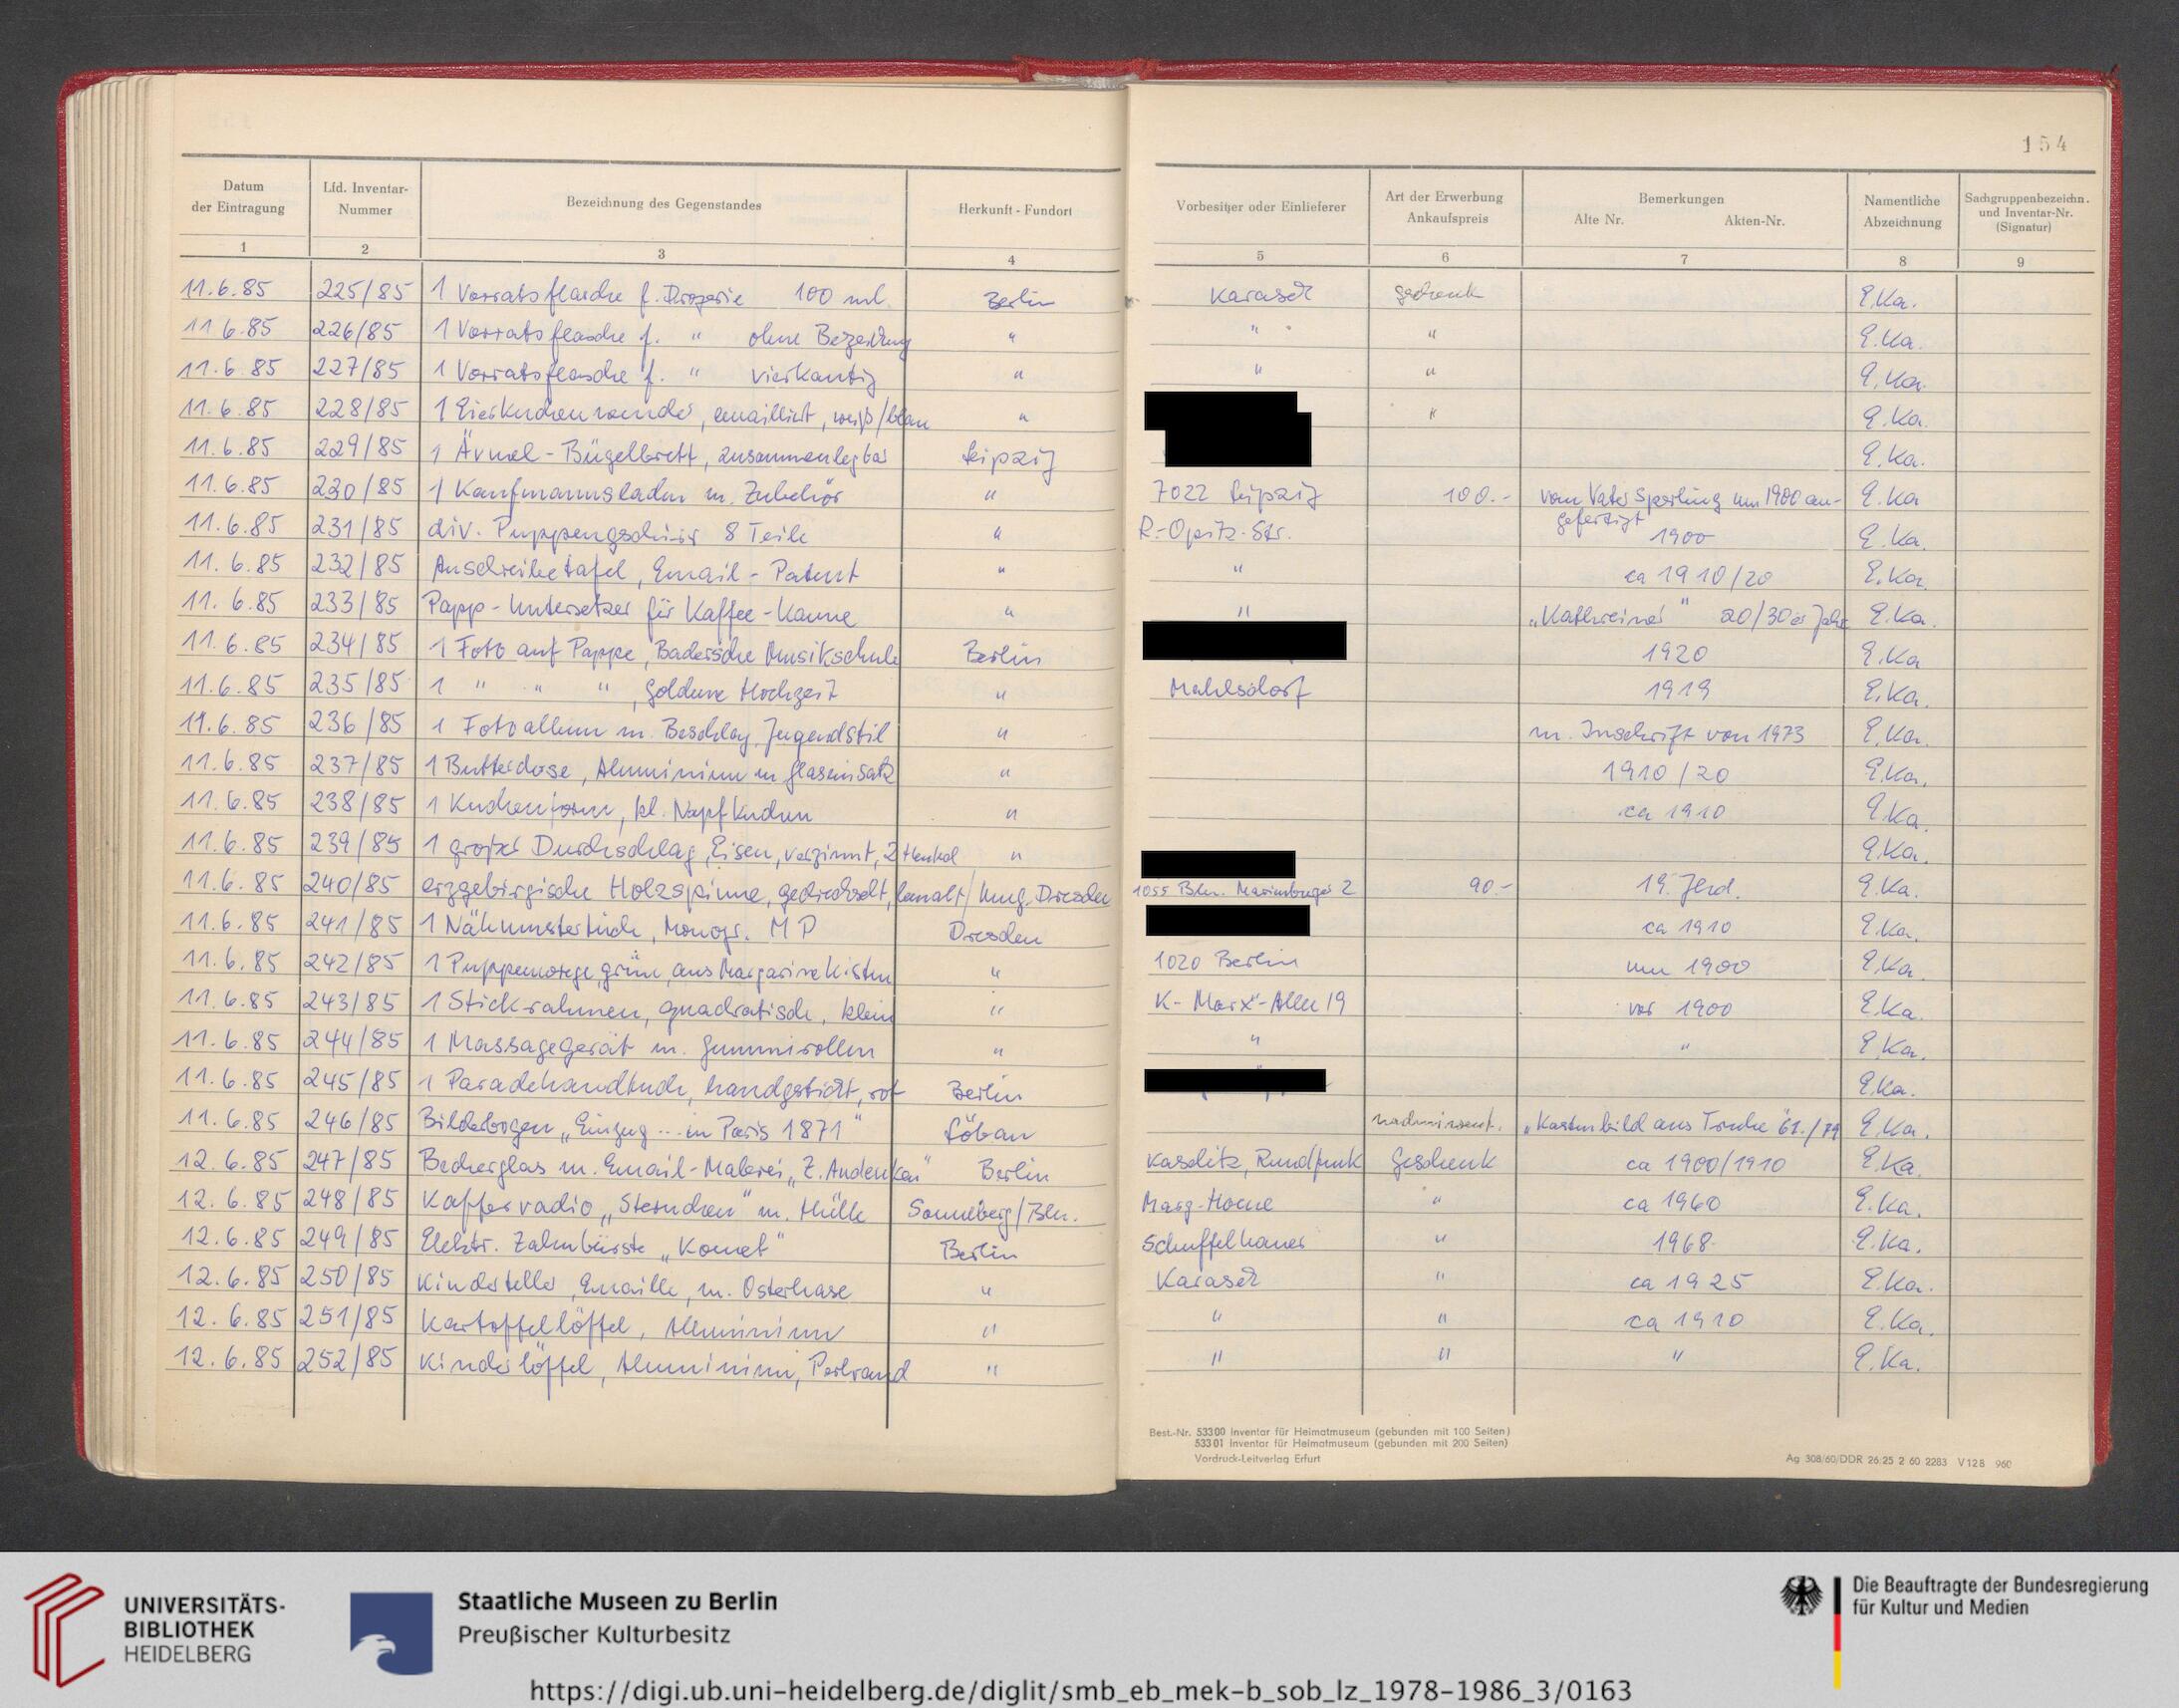 154
Datum der Eintragung | Lfd. Inventar-Nummer | Bezeichnung des Gegenstandes | Herkunft - Fundort | Vorbesitzer oder Einlieferer | Art der Erwerbung Ankaufspreis | Bemerkungen Alte Nr. Akten-Nr. | Namentliche Abzeichnung | Sachgruppenbezeichn. und Inventar-Nr. (Signatur)
1 | 2 | 3 | 4 | 5 | 6 | 7 | 8 | 9
11.6.85 | 225/85 | 1 Vorratsflasche f. Drogerie 100 ml. | Berlin | Karasek | Geschenk | E.Ka.
11.6.85 | 226/85 | 1 Vorratsflasche f. " ohne | " | " | " | E.Ka.
11.6.85 | 227/85 | 1 Vorratsflasche f. " vierkantig | " | " | " | E.Ka.
11.6.85 | 228/85 | 1 Eierkuchenwender, emailliert, weiß/blau | " | " | E.Ka.
11.6.85 | 229/85 | 1 Ärmel-Bügelbrett, zusammenlegbar | Leipzig | E.Ka.
11.6.85 | 230/85 | 1 Kaufmannsladen m. Zubehör | " | 7022 Leipzig | 100.- | vom Vater Sperling um 1900 an-gefertigt | E.Ka
11.6.85 | 231/85 | div. Puppengeschirr 8 Teile | " | R.-Opitz-Str. | 1900 | E.Ka.
11.6.85 | 232/85 | Anschreibetafel, Email-Patent | " | " | ca 1910/20 | E.Ka.
11.6.85 | 233/85 | Papp-Untersetzer für Kaffee-Kanne | " | " | "Kathreiner" 20/30er Jahre | E.Ka.
11.6.85 | 234/85 | 1 Foto auf Pappe, Badersche Musikschule | Berlin | 1920 | E.Ka
11.6.85 | 235/85 | 1 " " ", Goldene Hochzeit | " | Mahlsdorf | 1919 | E.Ka.
11.6.85 | 236/85 | 1 Fotoalbum m. Beschlag, Jugendstil | " | m. Inschrift von 1973 | E.Ka.
11.6.85 | 237/85 | 1 Butterdose, Aluminium m Glaseinsatz | " | 1910/20 | E.Ka.
11.6.85 | 238/85 | 1 Kuchenform, kl. Napfkuchen | " | ca 1910 | E.Ka.
11.6.85 | 239/85 | 1 großer Durchschlag, Eisen, verzinnt, 2 Henkel | " | E.Ka.
11.6.85 | 240/85 | erzgebirgische Holzspinne, gedrechselt, bemalt | Umg. Dresden | 1055 Bln. 2 | 90.- | 19. Jhd. | E.Ka.
11.6.85 | 241/85 | 1 Nähmustertuch, Monogr. M P | Dresden | ca 1910 | E.Ka.
11.6.85 | 242/85 | 1 grün, aus Margarinekisten | " | 1020 Berlin | um 1900 | E.Ka.
11.6.85 | 243/85 | 1 Stickrahmen, quadratisch, klein | " | K-Marx-Allee 19 | vor 1900 | E.Ka.
11.6.85 | 244/85 | 1 Massagegerät m. Gummirollen | " | " | " | E.Ka.
11.6.85 | 245/85 | 1 Paradehandtuch, handgestickt, rot | Berlin | E.Ka.
11.6.85 | 246/85 | Bilderbogen "Einzug ... in Paris 1871" | Löbau | nachinvent. | "Kastenbild aus Truhe 61./79 | E.Ka.
12.6.85 | 247/85 | Becherglas m. Email-Malerei "Z. Andenken" | Berlin | Kasditz, Rundfunk | Geschenk | ca 1900/1910 | E.Ka.
12.6.85 | 248/85 | Kofferradio "Sternchen" m. Hülle | Sonneberg/Bln. | " | ca 1960 | E.Ka.
12.6.85 | 249/85 | Elektr. Zahnbürste "Komet" | Berlin | Schuffelhauer | " | 1968 | E.Ka.
12.6.85 | 250/85 | Kinderteller, Emaille, m. Osterhase | " | Karasek | " | ca 1925 | E.Ka.
12.6.85 | 251/85 | Kartoffellöffel, Aluminium | " | " | " | ca 1910 | E.Ka.
12.6.85 | 252/85 | Kinderlöffel, Aluminium, Perlrand | " | " | " | " | E.Ka.
Best.-Nr. 53300 Inventar für Heimatmuseum (gebunden mit 100 Seiten)
53301 Inventar für Heimatmuseum (gebunden mit 200 Seiten)
Vordruck-Leitverlag Erfurt
Ag 308/60/DDR 26 25 2 60 2283 V128 960
UNIVERSITÄTS-
BIBLIOTHEK
HEIDELBERG
Staatliche Museen zu Berlin
Preußischer Kulturbesitz
Die Beauftragte der Bundesregierung
für Kultur und Medien
https://digi.ub.uni-heidelberg.de/diglit/smb_eb_mek-b_sob_lz_1978-1986_3/0163